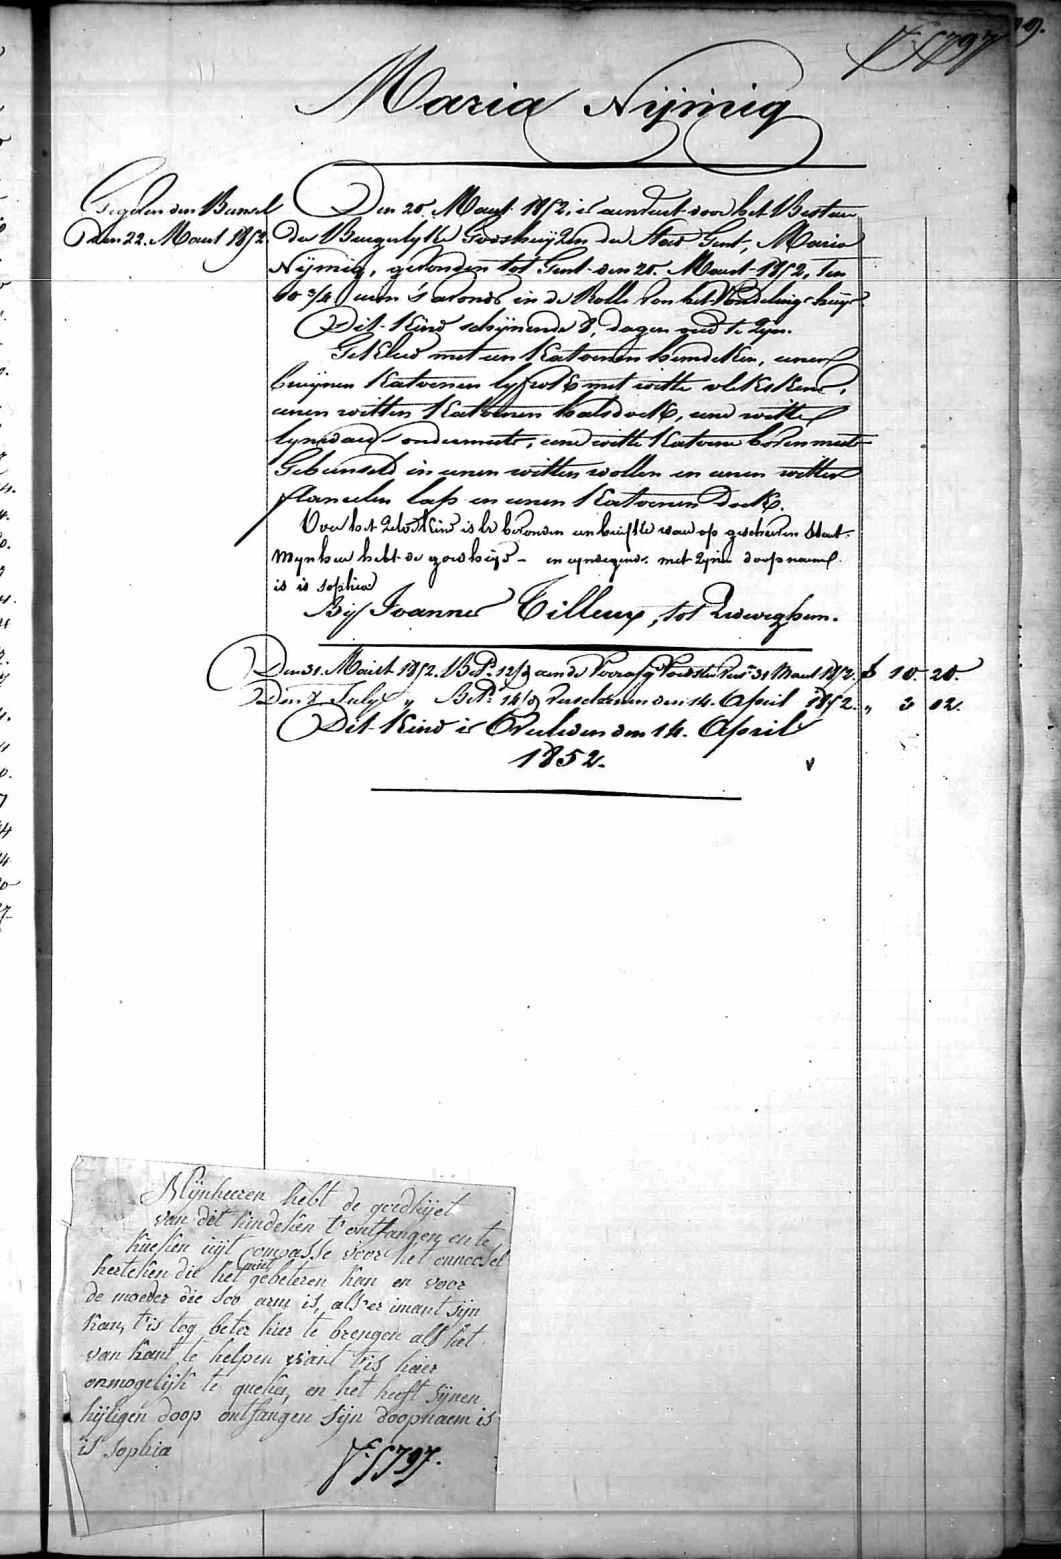 Maria Nijmig
Gegeven den Bunsel
den 22. Maart 1852.
Den 20. Maart 1852, is aenveert door het Bestuer
der Burgerlijke Godshuijzen der Stad Gent, Maria
Nijmig, gevonden tot Gent den 20. Maart 1852, ten
10 3/4 uren 's avonds in de Rolle van het Vondelingshuijs
Dit Kind schijnende 8, dagen oud te zijn.
Gekleed met een Katoenen hemdeken, eenen
bruijnen Katoenen lyfrok met witte vlekskens,
eenen witten Katoenen halsdoek, eene witte
lynwaed ondermuts, eene witte Katoene bovenmuts
Gebunseld in eenen witten wollen en eenen witten
flanelen lap en eenen Katoenen Doek.
Over het zelve Kind is bevonden een briefke waer op geschreven staet
Mynheer hebt de goedheijd - en eyndigende met zynen doopnaem
is is sophia
Bij Joannes Tilleux, tot Zweveghem.
Den 31. Maart 1852. 31 Maart 1852. f 10. 20.
Den 7 July " 14. April 1852. " 3 02.
Dit Kind is Overleden den 14. April
1852.
v
Mijnheeren hebt de goedhijet
van dit kindeken t'ontfangen en te
kueken uijt compasse voor het onnoosel
herteken die het niet gebeteren kan en voor
de moeder die soo arm is, als er imant sijn
kan, t'is tog beter hier te brengen als het
van kant te helpen want t'is haer
onmogelijk te queken, en het heeft sijnen
hijligen doop ontfangen sijn doopnaem is
is sophia